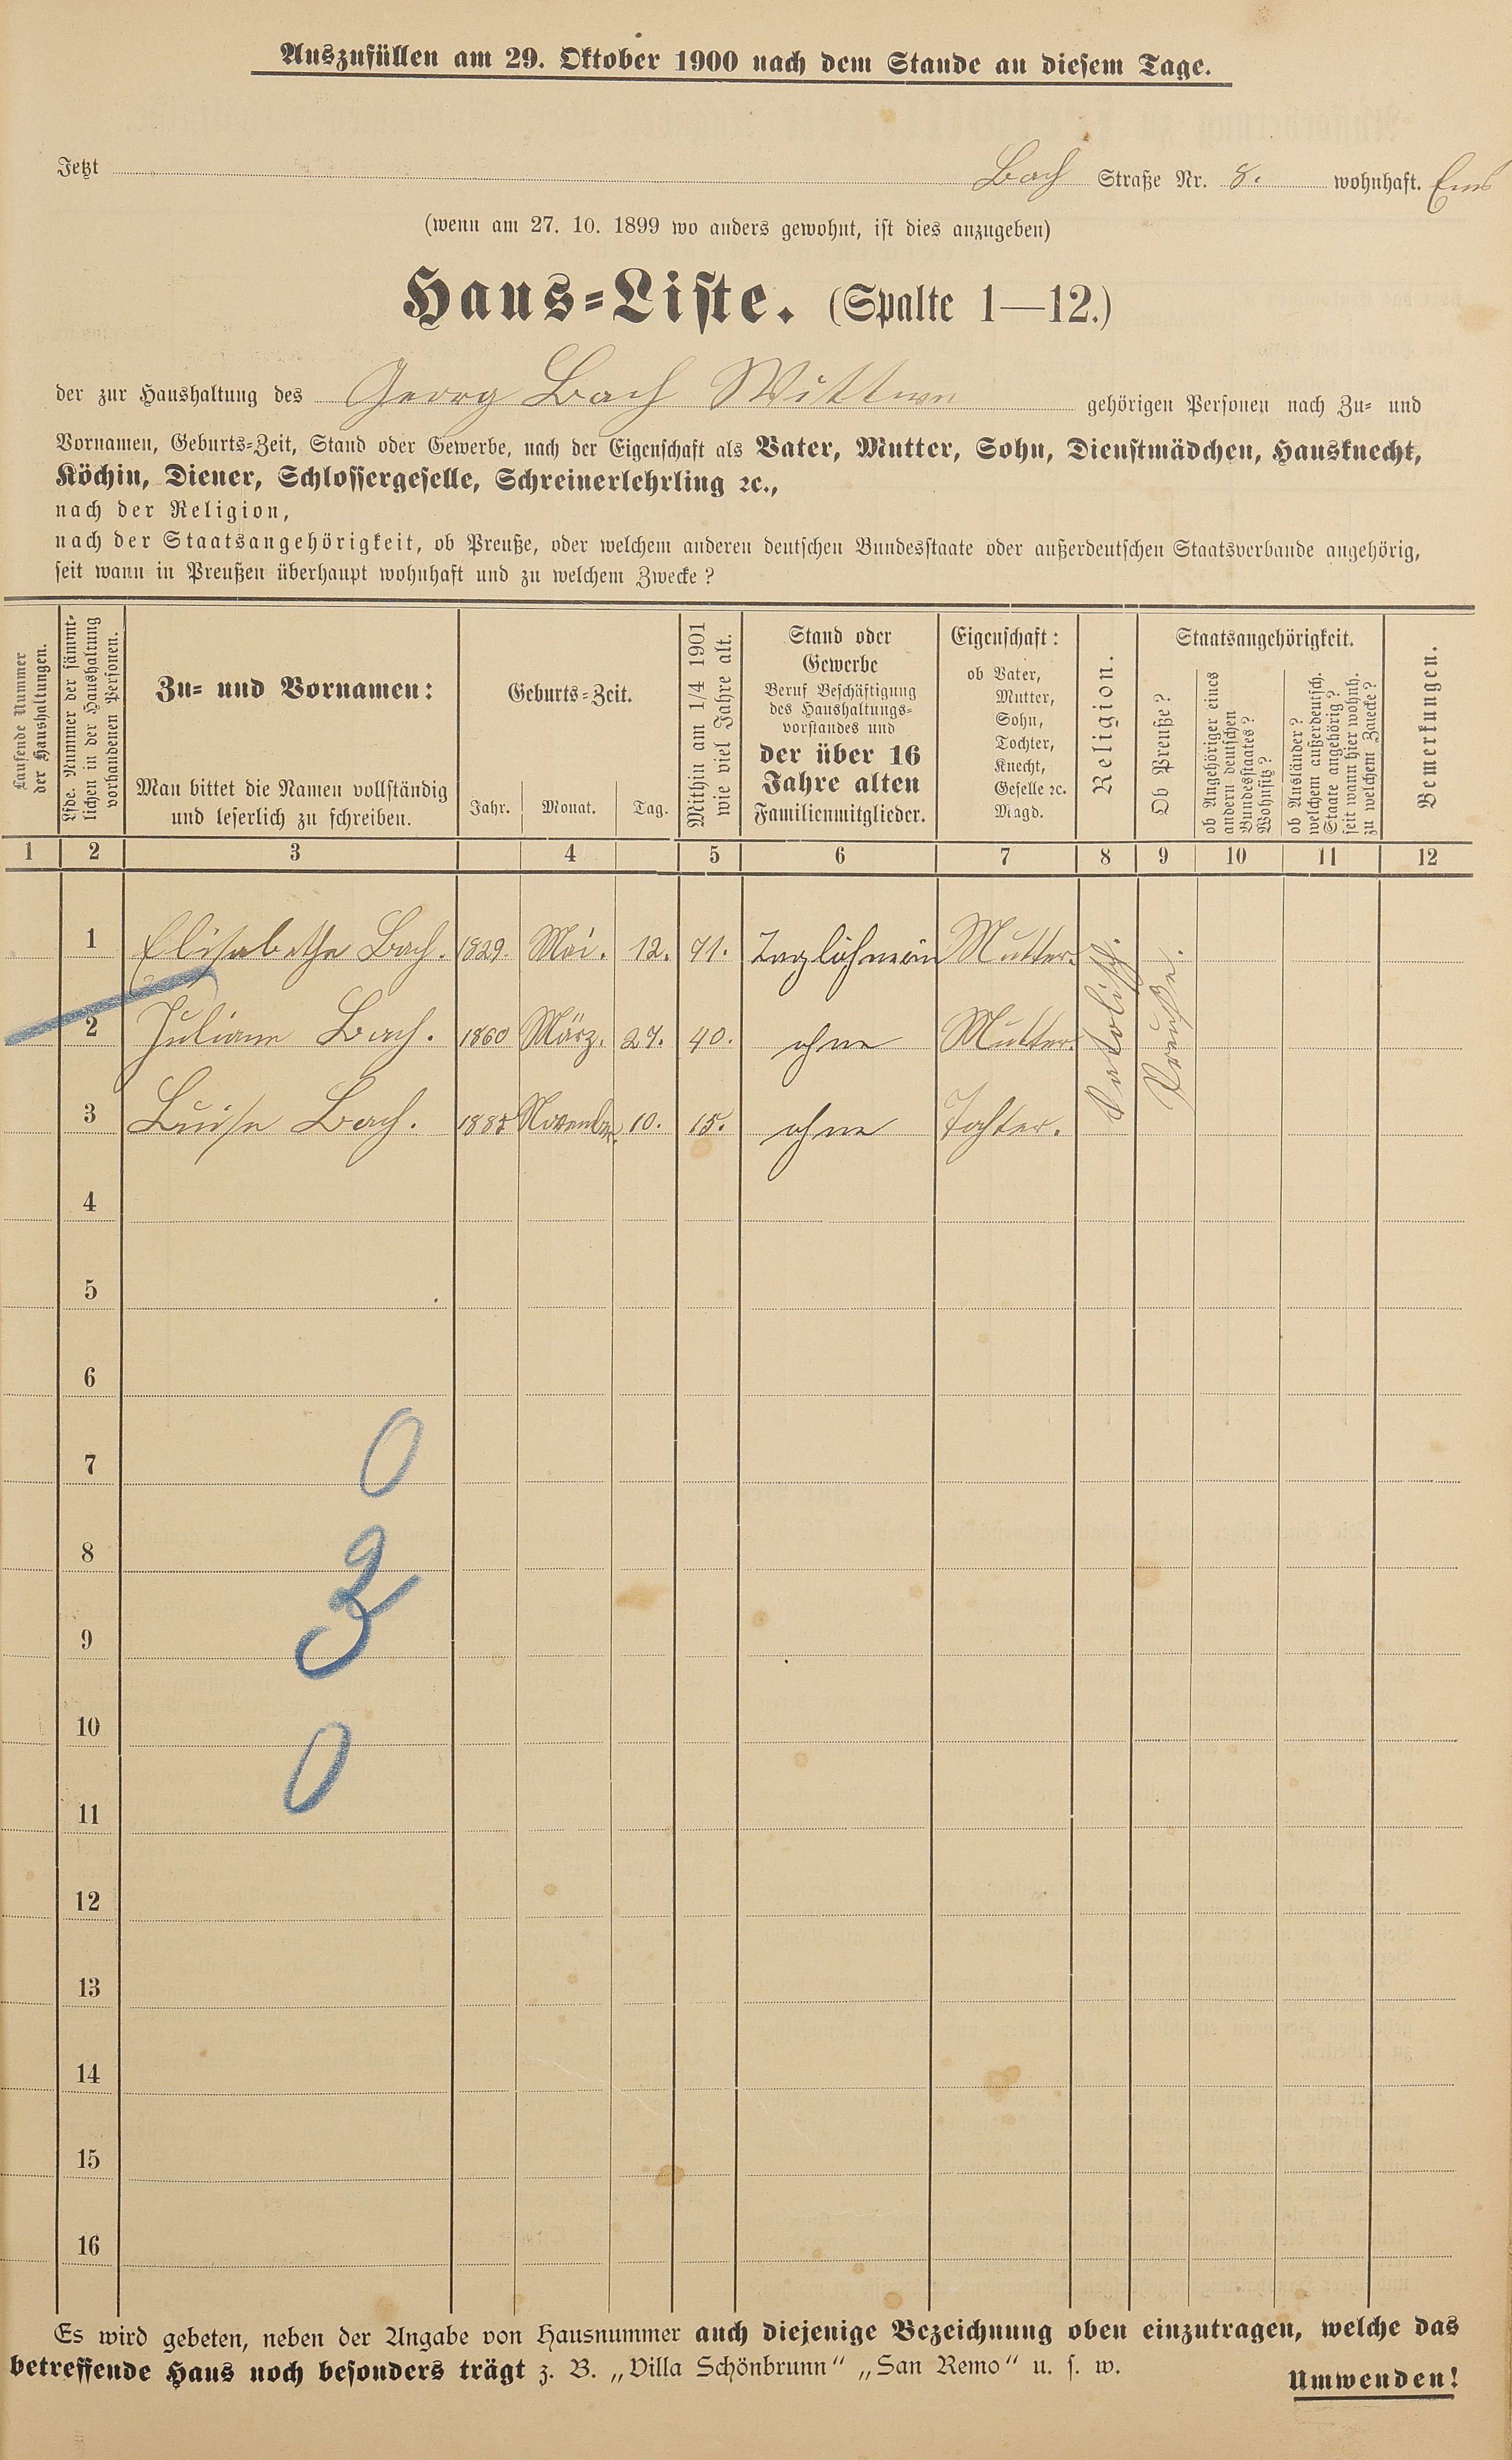 Auszufüllen am 29. Oktober 1900 nach dem Stande an diesem Tage.
Jetzt Bach Straße Nr. 8. wohnhaft. Ems
(wenn am 27. 10. 1899 wo anders gewohnt, ist dies anzugeben)
Haus-Liste. (Spalte 1—12.)
der zur Haushaltung des Georg Bach Wittwe gehörigen Personen nach Zu- und
Vornamen, Geburts-Zeit, Stand oder Gewerbe, nach der Eigenschaft als Vater, Mutter, Sohn, Dienstmädchen, Hausknecht,
Köchin, Diener, Schlossergeselle, Schreinerlehrling ꝛc.,
nach der Religion,
nach der Staatsangehörigkeit, ob Preuße, oder welchem anderen deutschen Bundesstaate oder außerdeutschen Staatsverbande angehörig,
seit wann in Preußen überhaupt wohnhaft und zu welchem Zwecke?
Laufende Nummer
der Haushaltungen.
Lfde. Nummer der sämmt-
lichen in der Haushaltung
vorhandenen Personen.
Zu- und Vornamen:
Man bittet die Namen vollständig
und leserlich zu schreiben.
Geburts-Zeit.
Jahr. Monat. Tag.
Mithin am 1/4 1901
wie viel Jahre alt.
Stand oder
Gewerbe
Beruf Beschäftigung
des Haushaltungs-
vorstandes und
der über 16
Jahre alten
Familienmitglieder.
Eigenschaft:
ob Vater,
Mutter,
Sohn,
Tochter,
Knecht,
Geselle ꝛc.
Magd.
Religion.
Staatsangehörigkeit.
Ob Preuße?
ob Angehöriger eines
andern deutschen
Bundesstaates?
Wohnsitz?
ob Ausländer?
welchem außerdeutsch.
Staate angehörig?
seit wann hier wohnh.
zu welchem Zwecke?
Bemerkungen.
1 2 3 4 5 6 7 8 9 10 11 12
1 Elisabetha Bach. 1829. Mai. 12. 71. Taglöhnerin Mutter.
2 Juliane Bach. 1860 März. 27. 40. ohne Mutter.
3 Luise Bach. 1885 November. 10. 15. ohne Tochter.
Katolisch.
Preuße.
4
5
6
7
8
9
10
11
12
13
14
15
16
0
3
0
Es wird gebeten, neben der Angabe von Hausnummer auch diejenige Bezeichnung oben einzutragen, welche das
betreffende Haus noch besonders trägt z. B. „Villa Schönbrunn“ „San Remo“ u. s. w.
Umwenden!